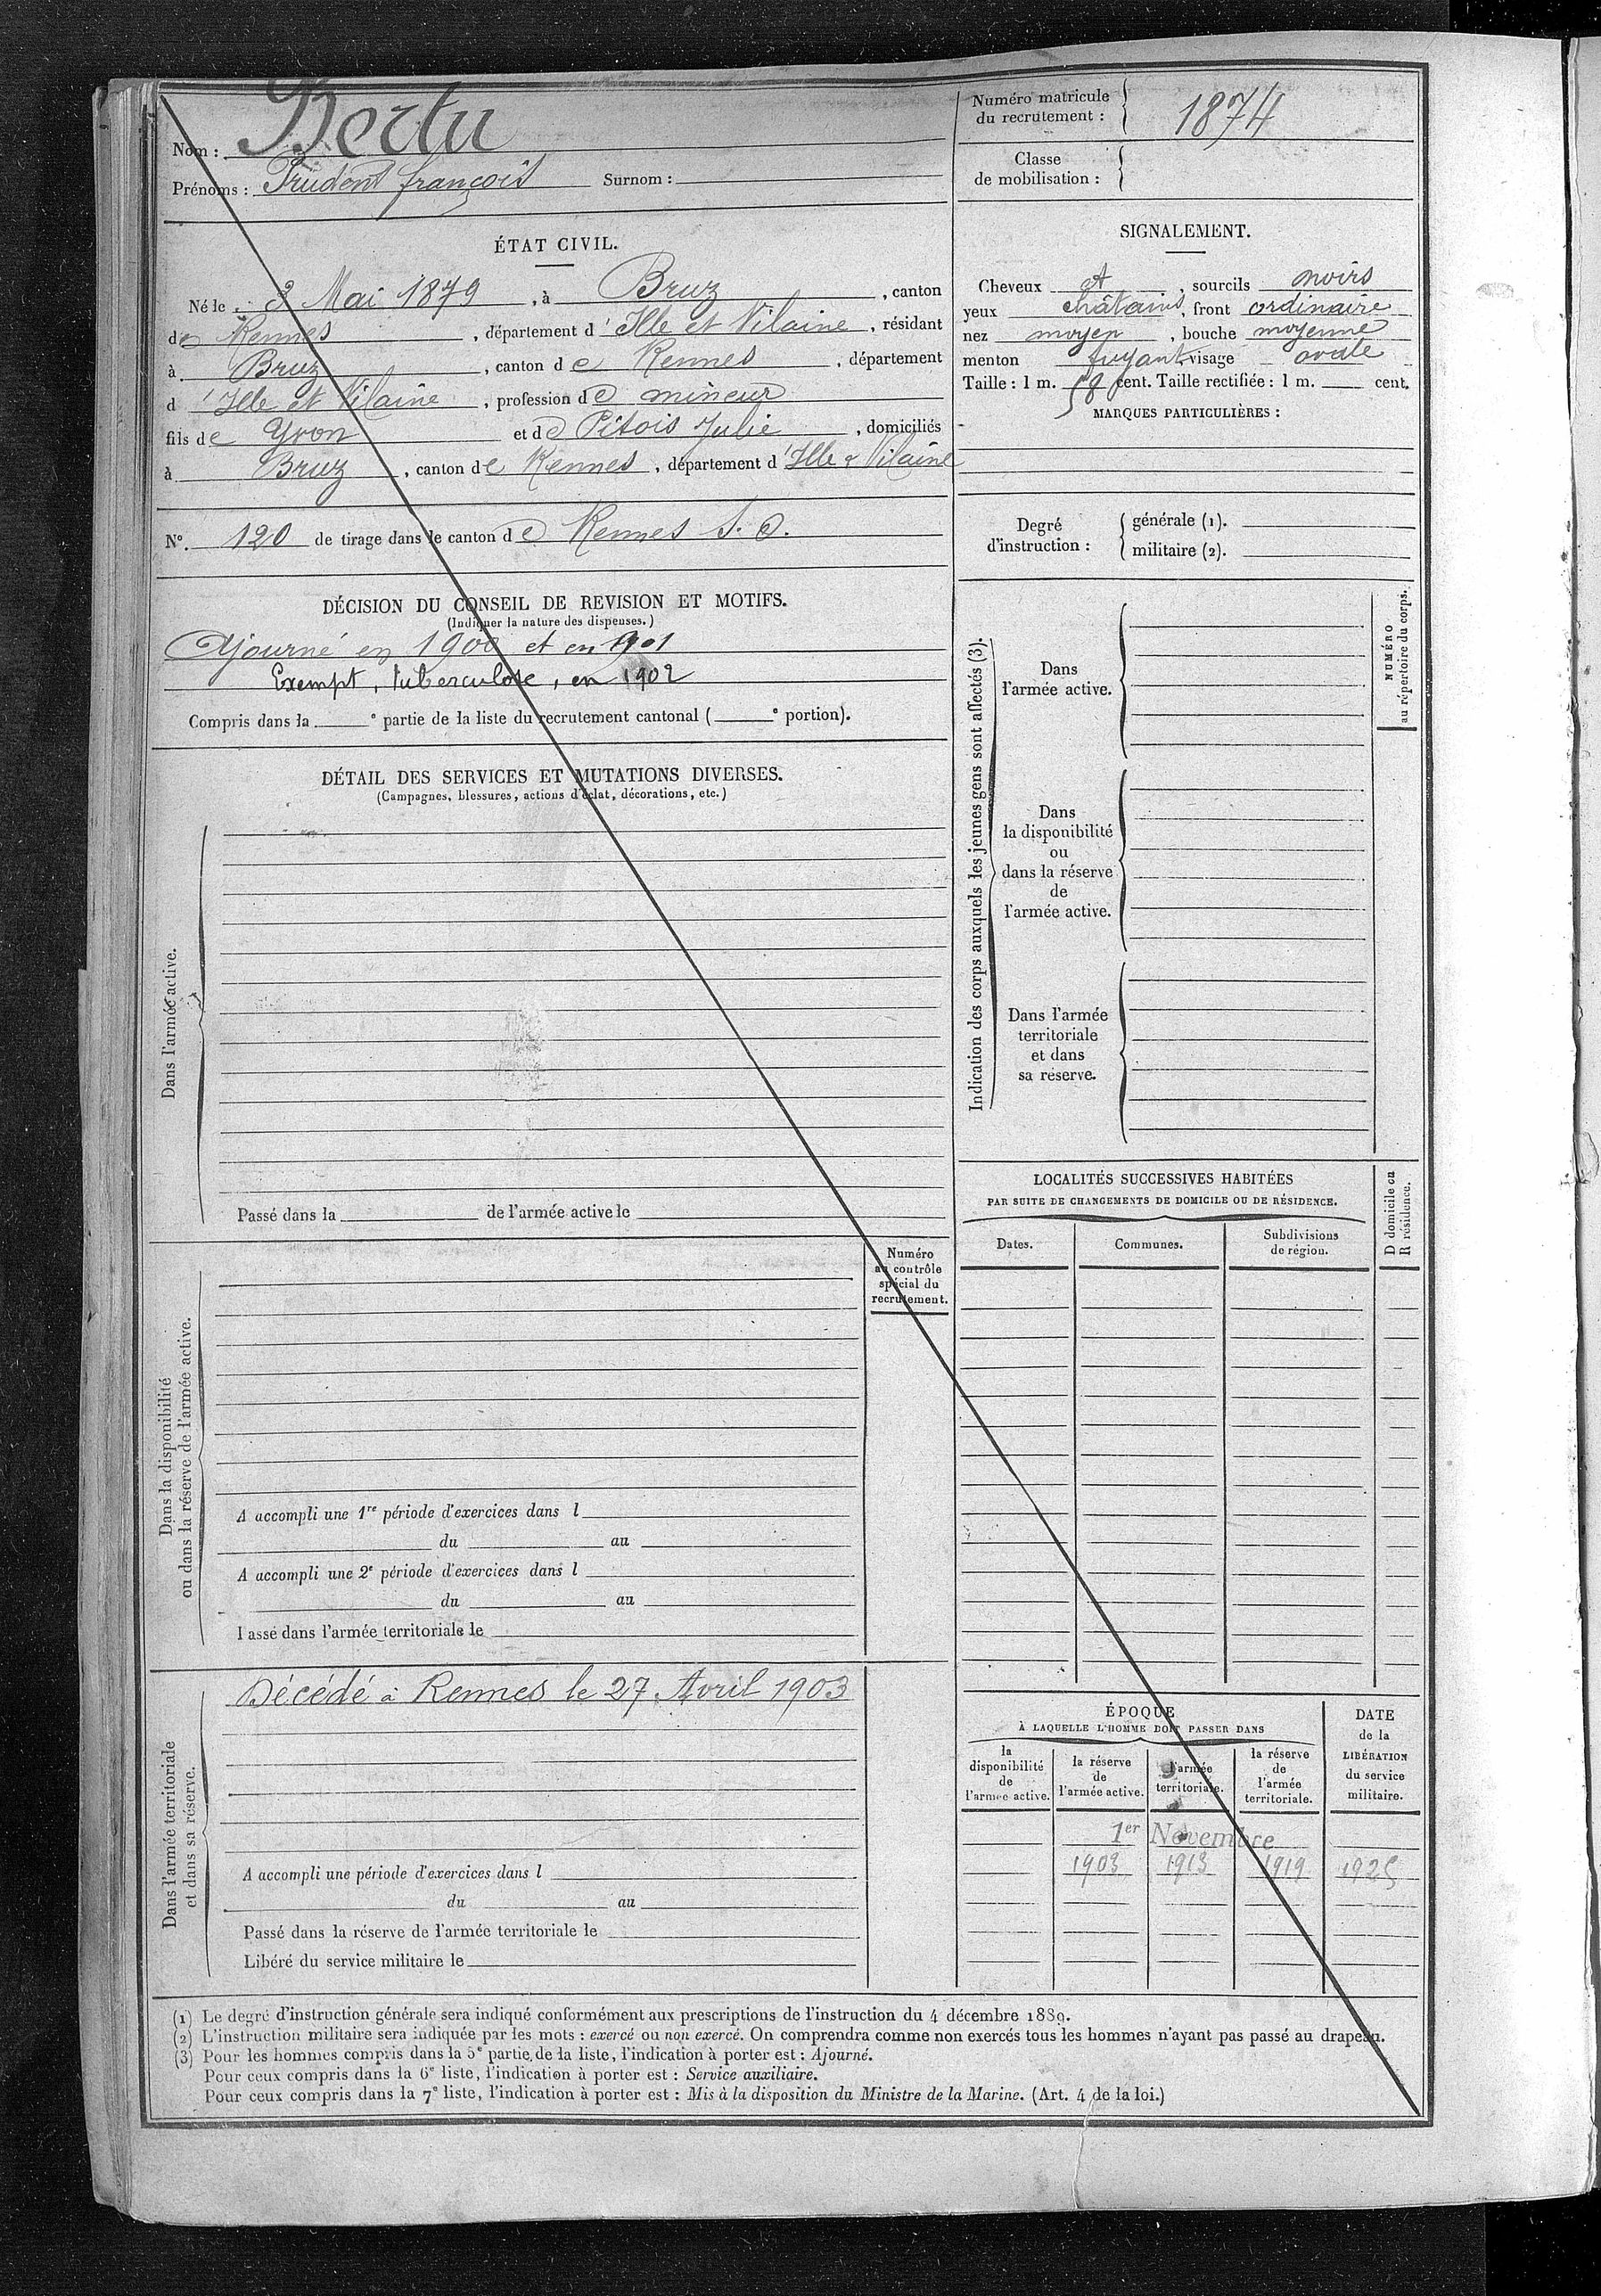 Nom : Bertu
Prénoms : Prudent françois Surnom :
Numéro matricule du recrutement : 1874
Classe de mobilisation :
ÉTAT CIVIL.
Né le 3 Mai 1879, à Bruz, canton
de Rennes, département d'Ille et Vilaine, résidant
à Bruz, canton de Rennes, département
d'Ille et Vilaine, profession de mineur
fils de Yvon et de Pitois Julie, domiciliés
à Bruz, canton de Rennes, département d'Ille & Vilaine
N°. 120 de tirage dans le canton de Rennes S. O.
SIGNALEMENT.
Cheveux et, sourcils noirs
yeux châtains, front ordinaire
nez moyen, bouche moyenne
menton fuyant, visage ovale
Taille : 1 m. 58 cent. Taille rectifiée : 1 m. cent.
MARQUES PARTICULIÈRES :
Degré d'instruction :
générale (1).
militaire (2).
DÉCISION DU CONSEIL DE REVISION ET MOTIFS.
(Indiquer la nature des dispenses.)
Ajourné en 1900 et en 1901
Exempt, tuberculose, en 1902
Compris dans la e partie de la liste du recrutement cantonal ( e portion).
DÉTAIL DES SERVICES ET MUTATIONS DIVERSES.
(Campagnes, blessures, actions d'éclat, décorations, etc.)
Dans l'armée active.
Passé dans la de l'armée active le
Indication des corps auxquels les jeunes gens sont affectés (3).
Dans
l'armée active.
Dans
la disponibilité
ou
dans la réserve
de
l'armée active.
Dans l'armée
territoriale
et dans
sa réserve.
NUMÉRO
au répertoire du corps.
LOCALITÉS SUCCESSIVES HABITÉES
PAR SUITE DE CHANGEMENTS DE DOMICILE OU DE RÉSIDENCE.
Dates.
Communes.
Subdivisions
de région.
D domicile ou
R résidence.
Numéro
au contrôle
spécial du
recrutement.
Dans la disponibilité
ou dans la réserve de l'armée active.
A accompli une 1re période d'exercices dans l
du au
A accompli une 2e période d'exercices dans l
du au
Passé dans l'armée territoriale le
Dans l'armée territoriale
et dans sa réserve.
Décédé à Rennes le 27 Avril 1903
A accompli une période d'exercices dans l
du au
Passé dans la réserve de l'armée territoriale le
Libéré du service militaire le
ÉPOQUE
À LAQUELLE L'HOMME DOIT PASSER DANS
la
disponibilité
de
l'armée active.
la réserve
de
l'armée active.
l'armée
territoriale.
la réserve
de
l'armée
territoriale.
DATE
de la
LIBÉRATION
du service
militaire.
1er Novembre
1903 1913 1919 1925
(1) Le degré d'instruction générale sera indiqué conformément aux prescriptions de l'instruction du 4 décembre 1889.
(2) L'instruction militaire sera indiquée par les mots : exercé ou non exercé. On comprendra comme non exercés tous les hommes n'ayant pas passé au drapeau.
(3) Pour les hommes compris dans la 5e partie de la liste, l'indication à porter est : Ajourné.
Pour ceux compris dans la 6e liste, l'indication à porter est : Service auxiliaire.
Pour ceux compris dans la 7e liste, l'indication à porter est : Mis à la disposition du Ministre de la Marine. (Art. 4 de la loi.)